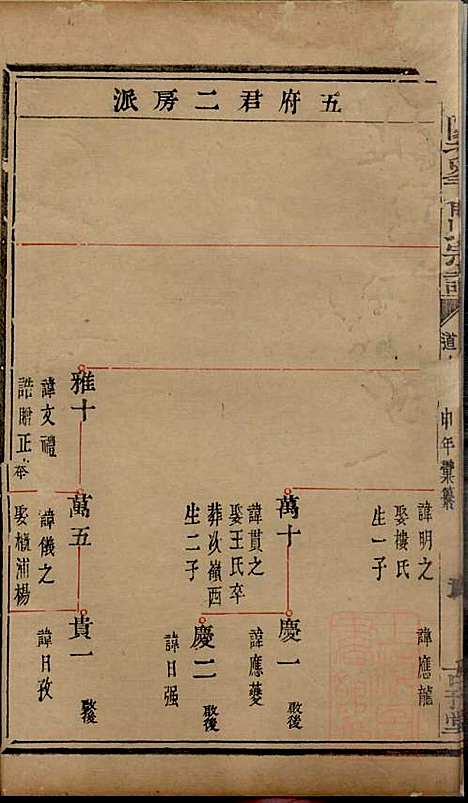 五府君二房派
宗譜
道
申年彙纂
諱明之
娶樓氏
生一子
諱應龍
萬十
諱貫之
娶王氏卒
葬次嶺西
生二子
慶一
諱應夔
啟後
慶二
諱日强
啟後
雅十
諱文禮
誥贈正奉
萬五
諱儀之
娶楨浦楊
貴一
諱日孜
啟後